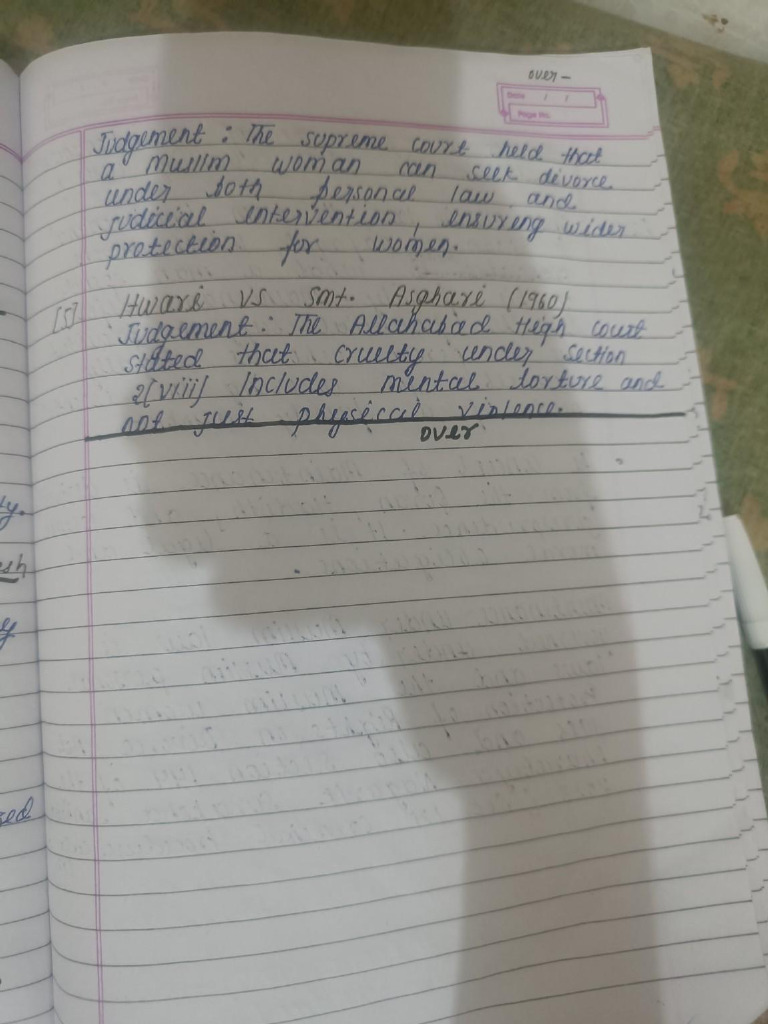 over-
Date / /
Page No.
Judgement : The supreme court held that
a muslim woman can seek divorce
under both personal law and
judicial intervention, ensuring wider
protection for women.
[5] Itwari vs Smt. Asghari (1960)
Judgement : The Allahabad High court
stated that cruelty under section
2(viii) Includes mental torture and
not just physical violence.
over
ly.
esh
y
sed